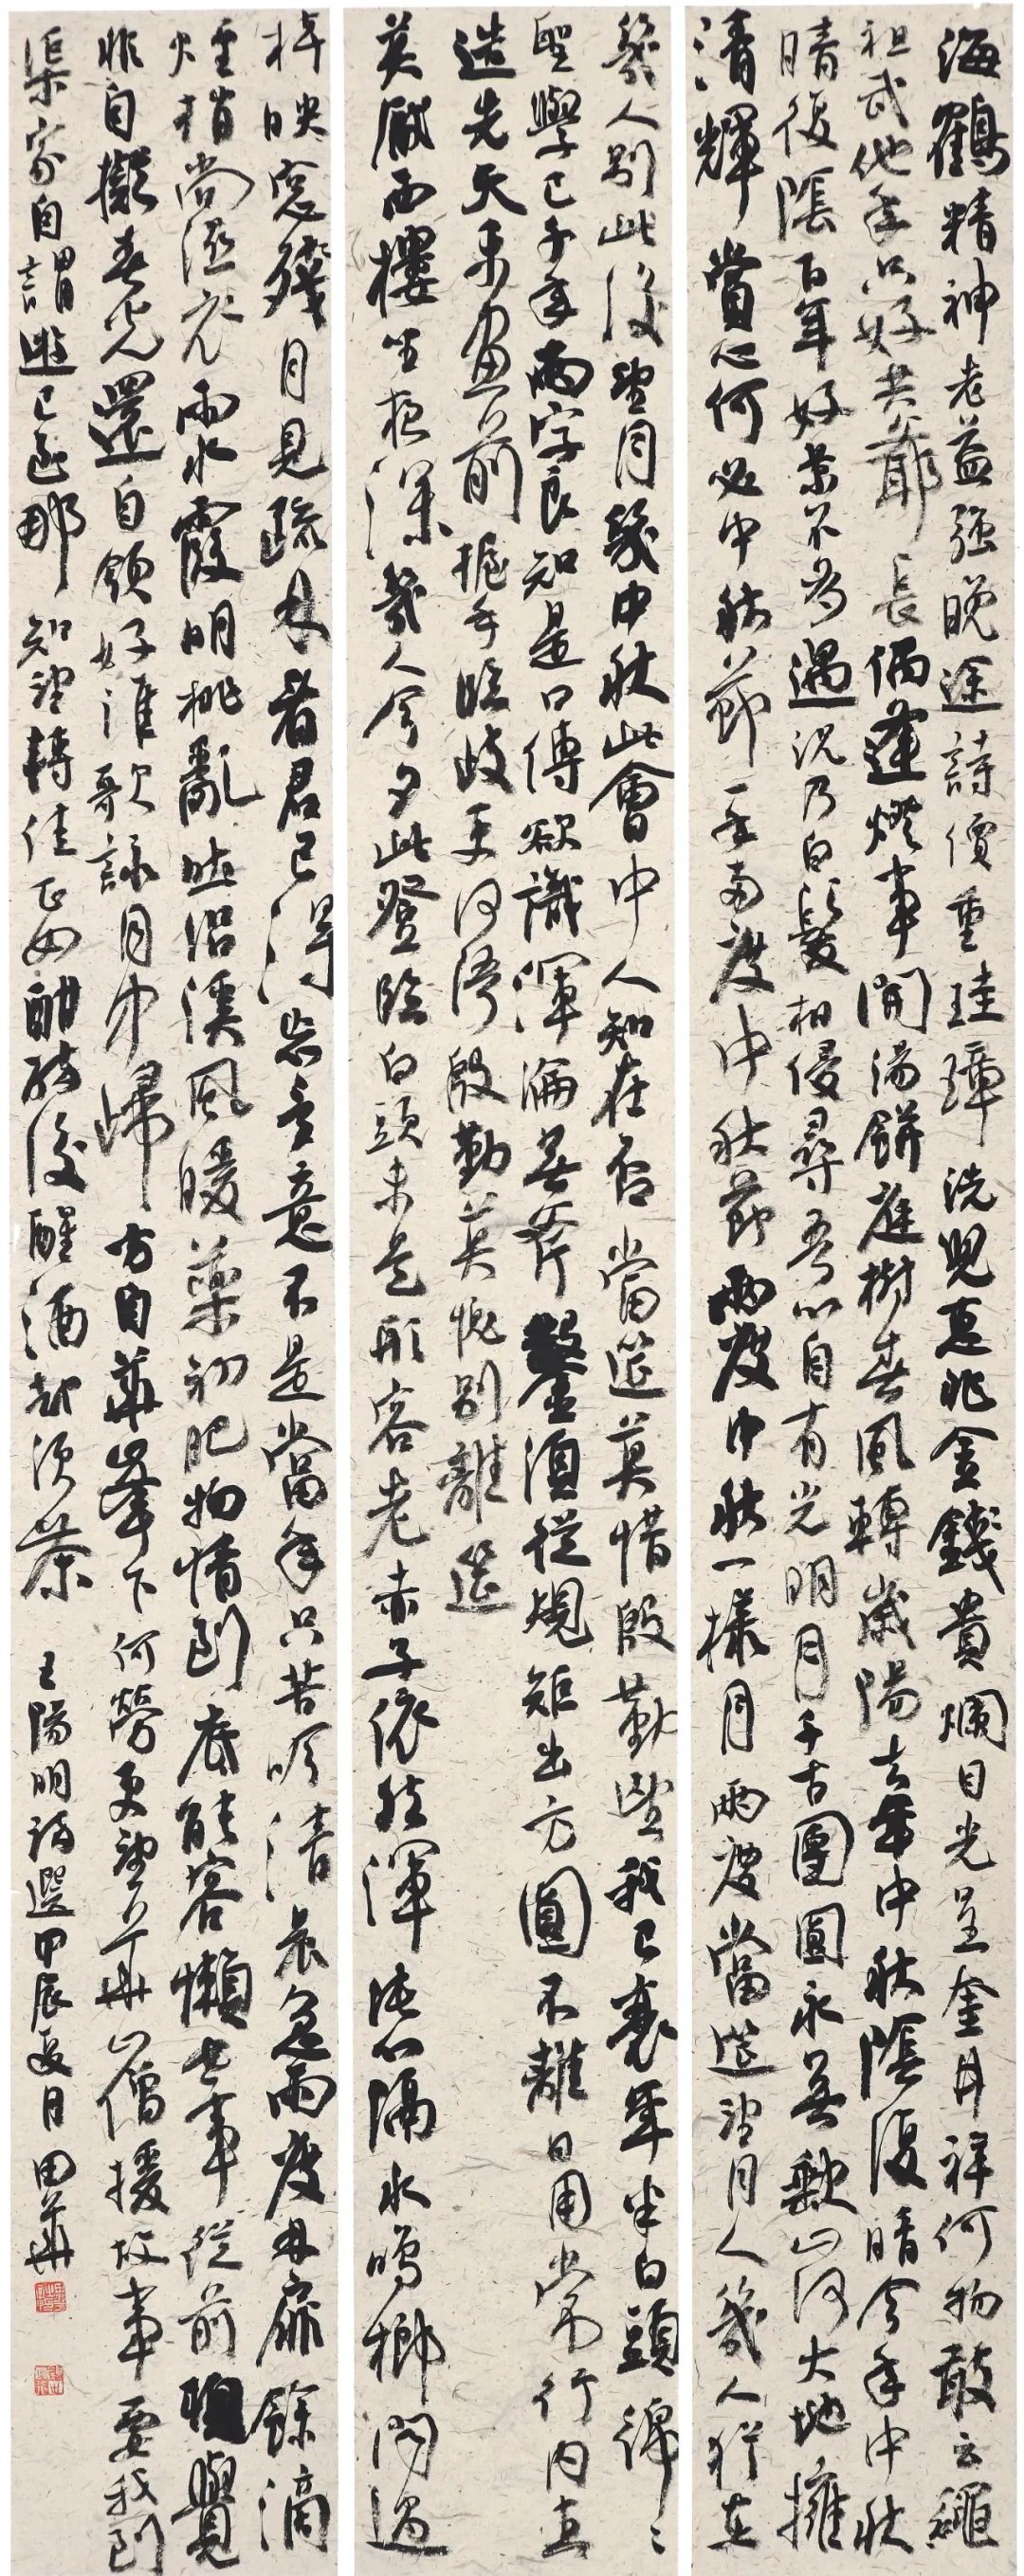 海鶴精神老益強晚途詩價重珪璋洗兒惠兆金錢貴爛目光呈奎井祥何物敢云繩
祖武他年只好共爺長偶逢燈事開湯餅庭樹春風轉歲陽去年中秋陰復晴今年中秋
晴復陰百年好景不多遇況乃白髮相侵尋吾心自有光明月千古團圓永無缺山河大地擁
清輝賞心何必中秋節一年兩度中秋節兩度中秋一樣月兩度當筵望月人幾人猶在
幾人別此後望月幾中秋此會中人知在否當筵莫惜殷勤我已衰年半白頭綿々
聖學已千年兩字良知是口傳欲識渾淪無斧鑿須從規矩出方圓不離日用常行內直
造先天未畫前握手臨歧更何語殷勤莫愧別離筵
莫厭西樓坐夜深幾人今夕此登臨白頭未是形容老赤子依然渾沌心隔水鳴榔聞過
棹映窗殘月見疏林看君已得忘言意不是當年只苦吟清晨急雨度林扉餘滴
煙梢尚濕衣雨水霞明桃亂吐沿溪風暖藥初肥物情到底能容懶世事從前頓覺
非自擬春光還自領好誰歌詠月中歸方自華峯下何勞更望華山僧援故事要我到
渠家自謂遊已至那知望轉佳正如酣醉後醒酒卻須茶 王陽明詩選甲辰夏日田華